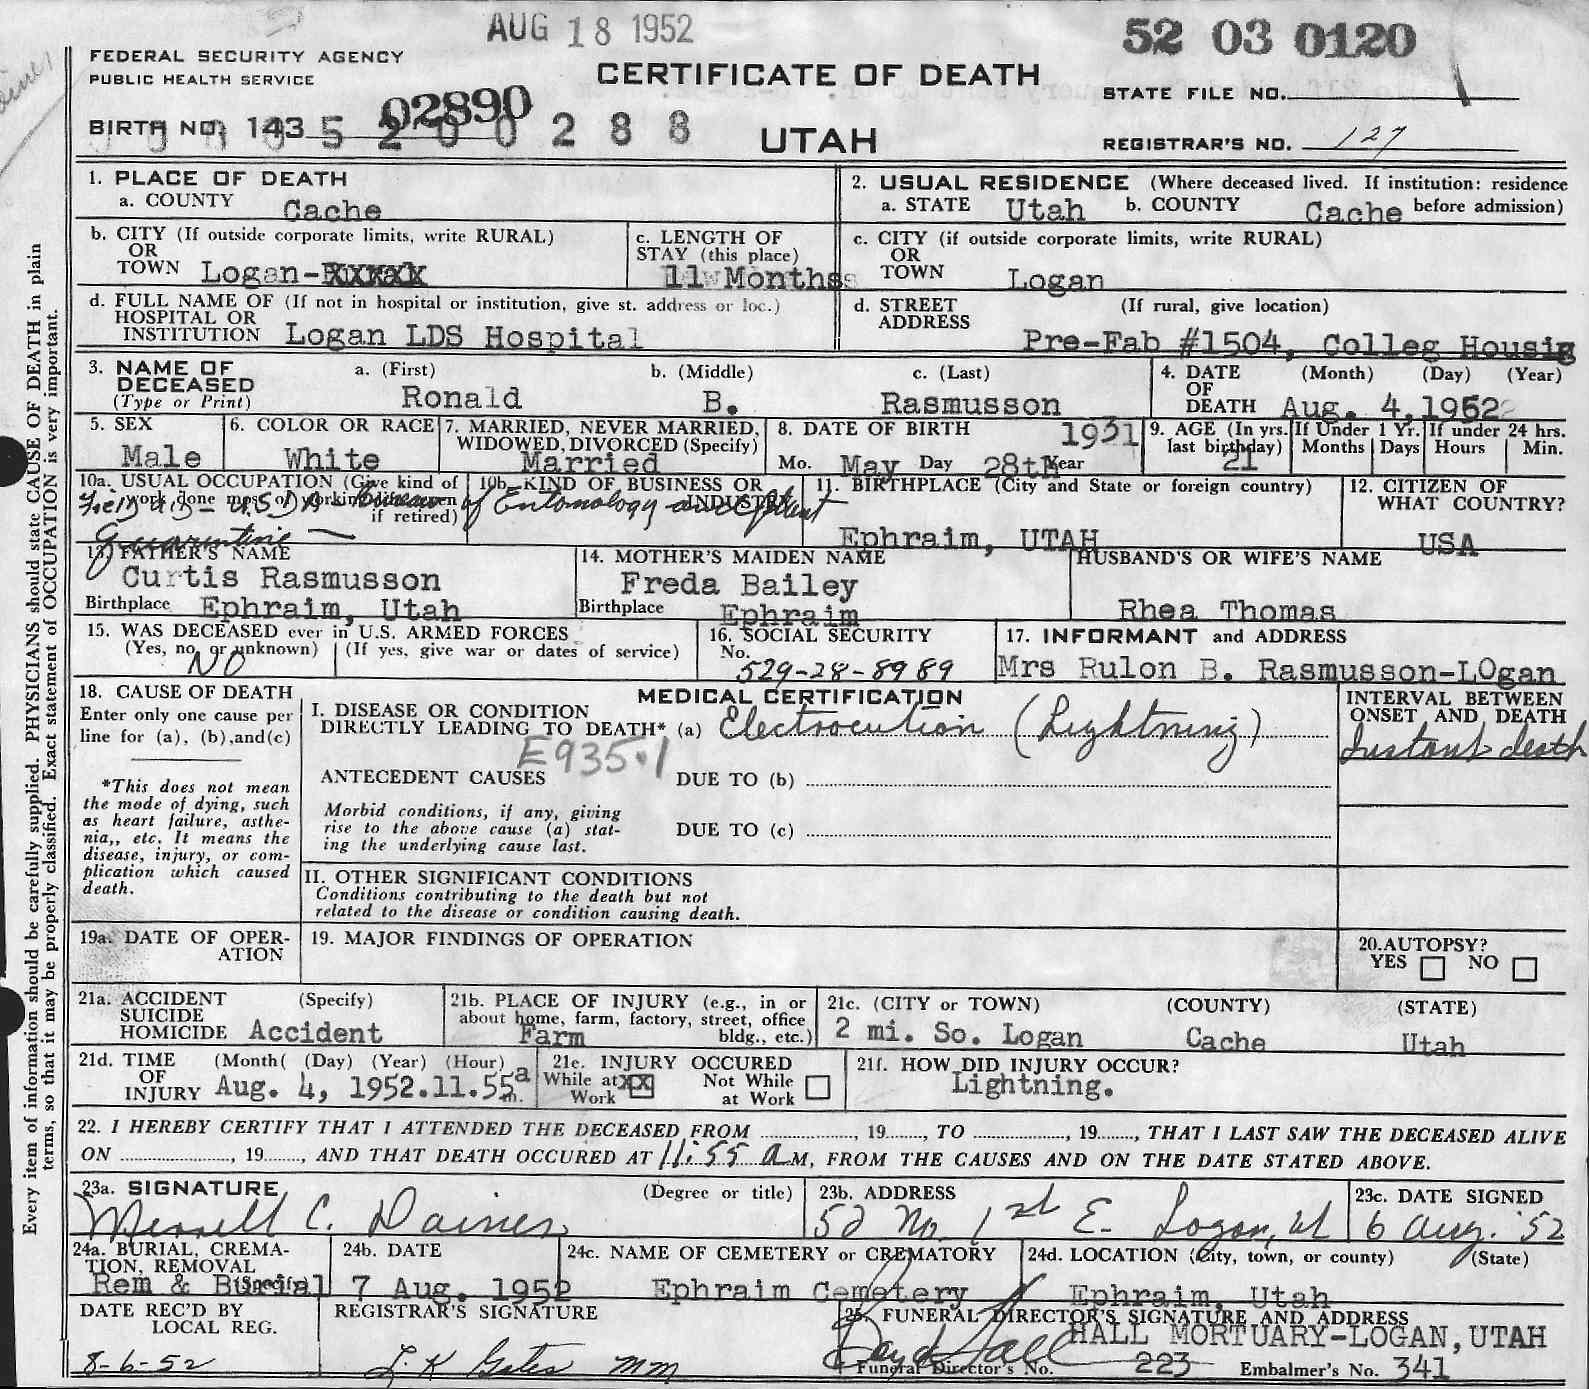 AUG 18 1952
52 03 0120
FEDERAL SECURITY AGENCY
PUBLIC HEALTH SERVICE
CERTIFICATE OF DEATH
STATE FILE NO.
02890
BIRTH NO. 143 5 2 0 0 2 8 8
UTAH
REGISTRAR'S NO. 127
1. PLACE OF DEATH
a. COUNTY Cache
2. USUAL RESIDENCE (Where deceased lived. If institution: residence before admission)
a. STATE Utah b. COUNTY Cache
b. CITY (If outside corporate limits, write RURAL)
OR
TOWN Logan-
c. LENGTH OF
STAY (this place)
11 Months
c. CITY (if outside corporate limits, write RURAL)
OR
TOWN Logan
d. FULL NAME OF (If not in hospital or institution, give st. address or loc.)
HOSPITAL OR
INSTITUTION Logan LDS Hospital
d. STREET (If rural, give location)
ADDRESS
Pre-Fab #1504, Colleg Housig
3. NAME OF
DECEASED
(Type or Print)
a. (First) b. (Middle) c. (Last)
Ronald B. Rasmusson
4. DATE (Month) (Day) (Year)
OF
DEATH Aug. 4, 1952
5. SEX
Male
6. COLOR OR RACE
White
7. MARRIED, NEVER MARRIED,
WIDOWED, DIVORCED (Specify)
Married
8. DATE OF BIRTH 1931
Mo. May Day 28th Year
9. AGE (In yrs. last birthday)
21
If Under 1 Yr.
Months Days
If under 24 hrs.
Hours Min.
10a. USUAL OCCUPATION (Give kind of
work done most of working
if retired)
10b. KIND OF BUSINESS OR
INDUSTRY
Field aid - USDA - Bureau of Entomology and Plant
Quarantine
11. BIRTHPLACE (City and State or foreign country)
Ephraim, UTAH
12. CITIZEN OF
WHAT COUNTRY?
USA
13. FATHER'S NAME
Curtis Rasmusson
Birthplace Ephraim, Utah
14. MOTHER'S MAIDEN NAME
Freda Bailey
Birthplace Ephraim
HUSBAND'S OR WIFE'S NAME
Rhea Thomas
15. WAS DECEASED ever in U.S. ARMED FORCES
(Yes, no, or unknown) (If yes, give war or dates of service)
NO
16. SOCIAL SECURITY
No.
529-28-8989
17. INFORMANT and ADDRESS
Mrs Rulon B. Rasmusson-LOgan
18. CAUSE OF DEATH
Enter only one cause per
line for (a), (b),and(c)
*This does not mean
the mode of dying, such
as heart failure, asthe-
nia,, etc. It means the
disease, injury, or com-
plication which caused
death.
MEDICAL CERTIFICATION
I. DISEASE OR CONDITION
DIRECTLY LEADING TO DEATH* (a) Electrocution (Lightning)
E935.1
ANTECEDENT CAUSES DUE TO (b)
Morbid conditions, if any, giving
rise to the above cause (a) stat-
ing the underlying cause last.
DUE TO (c)
INTERVAL BETWEEN
ONSET AND DEATH
Instant death
II. OTHER SIGNIFICANT CONDITIONS
Conditions contributing to the death but not
related to the disease or condition causing death.
19a. DATE OF OPER-
ATION
19. MAJOR FINDINGS OF OPERATION
20.AUTOPSY?
YES NO
21a. ACCIDENT (Specify)
SUICIDE
HOMICIDE Accident
21b. PLACE OF INJURY (e.g., in or
about home, farm, factory, street, office
bldg., etc.)
Farm
21c. (CITY or TOWN) (COUNTY) (STATE)
2 mi. So. Logan Cache Utah
21d. TIME (Month( (Day) (Year) (Hour)
OF
INJURY Aug. 4, 1952.11.55a m.
21e. INJURY OCCURED
While at XX Not While
Work at Work
21f. HOW DID INJURY OCCUR?
Lightning.
22. I HEREBY CERTIFY THAT I ATTENDED THE DECEASED FROM , 19 , TO , 19 , THAT I LAST SAW THE DECEASED ALIVE
ON , 19 , AND THAT DEATH OCCURED AT 11:55 a M, FROM THE CAUSES AND ON THE DATE STATED ABOVE.
23a. SIGNATURE (Degree or title)
Merrell C. Daines
23b. ADDRESS
52 No. 1st E. Logan, Ut
23c. DATE SIGNED
6 Aug. '52
24a. BURIAL, CREMA-
TION, REMOVAL
(Specify)
Rem & Burial
24b. DATE
7 Aug. 1952
24c. NAME OF CEMETERY or CREMATORY
Ephraim Cemetery
24d. LOCATION (City, town, or county) (State)
Ephraim, Utah
DATE REC'D BY
LOCAL REG.
8-6-52
REGISTRAR'S SIGNATURE
L. K Gates MM
25. FUNERAL DIRECTOR'S SIGNATURE AND ADDRESS
HALL MORTUARY-LOGAN, UTAH
Boyd Hall
Funeral Director's No. 223 Embalmer's No. 341
Every item of information should be carefully supplied. PHYSICIANS should state CAUSE OF DEATH in plain
terms, so that it may be properly classified. Exact statement of OCCUPATION is very important.